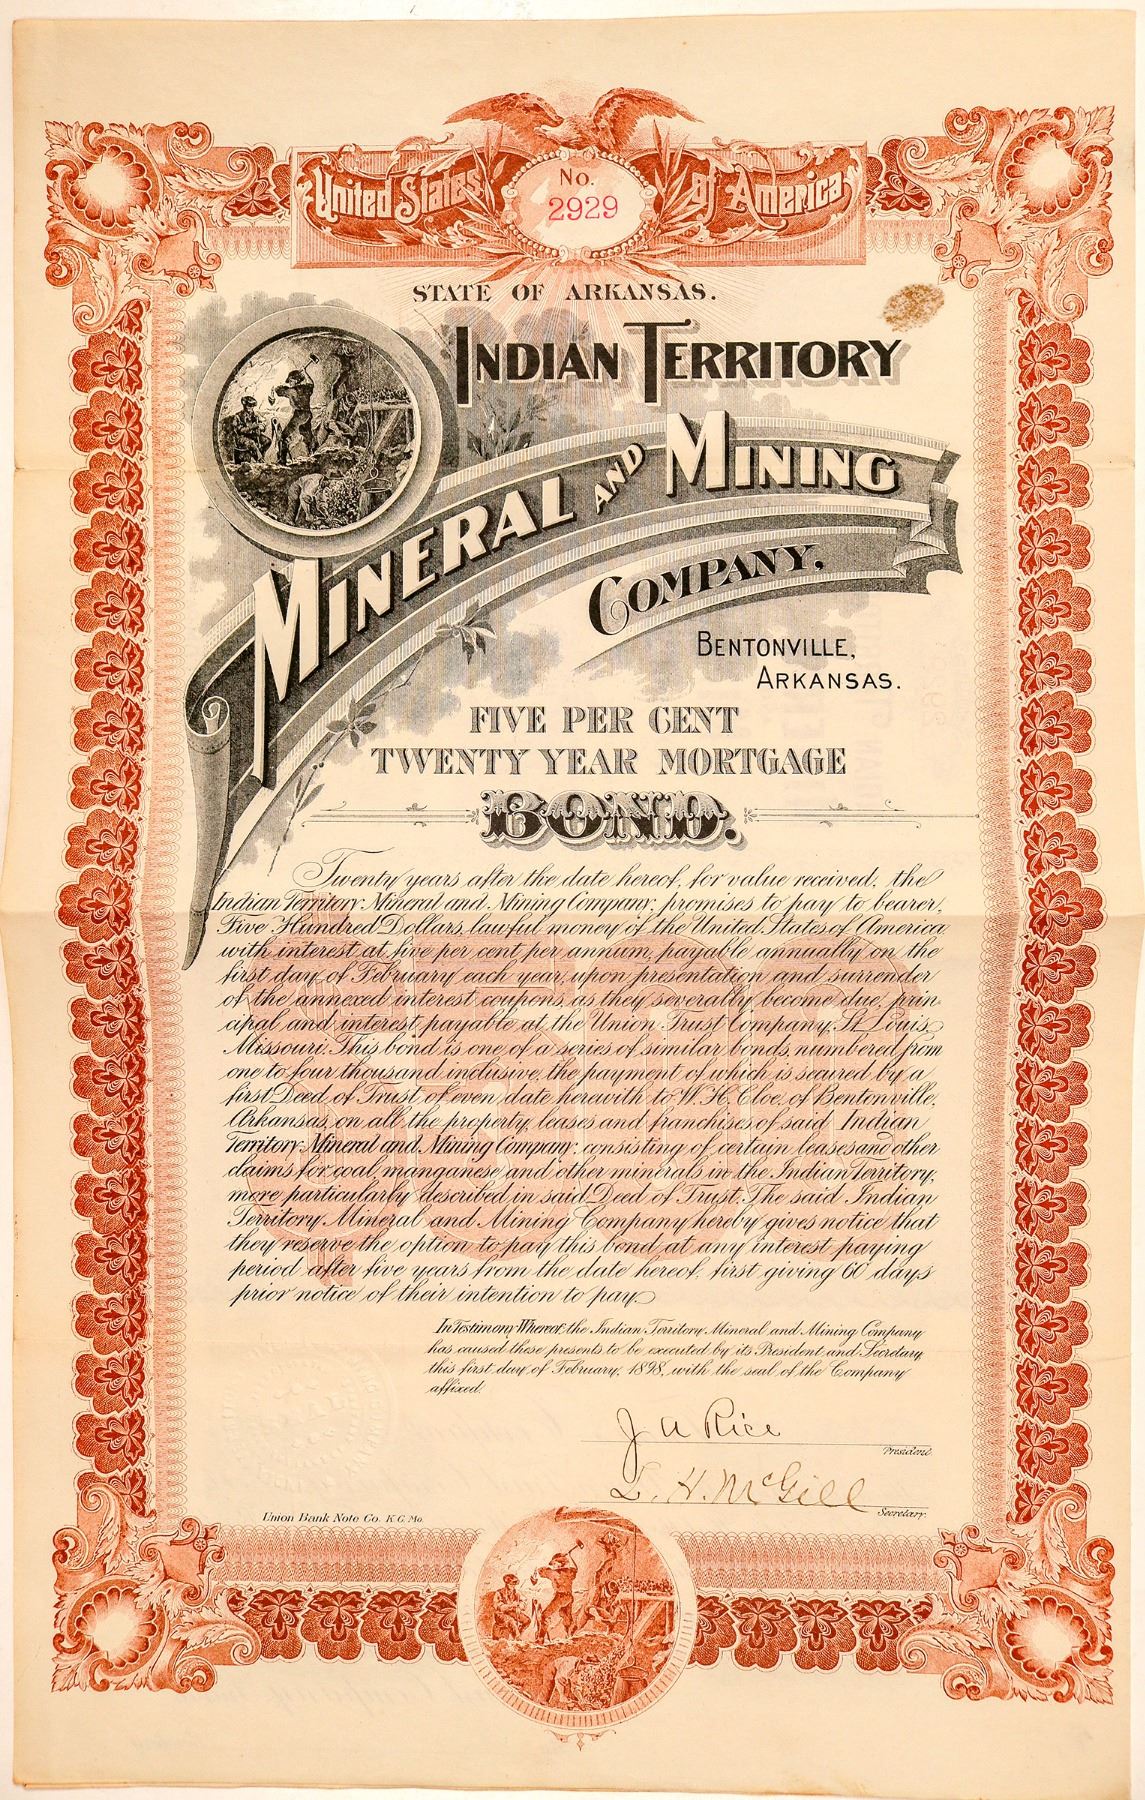 United States of America
No.
2929
STATE OF ARKANSAS.
INDIAN TERRITORY
MINERAL AND MINING
COMPANY,
BENTONVILLE,
ARKANSAS.
FIVE PER CENT
TWENTY YEAR MORTGAGE
BOND.
Twenty years after the date hereof, for value received, the
Indian Territory Mineral and Mining Company, promises to pay to bearer,
Five Hundred Dollars, lawful money of the United States of America
with interest at five per cent per annum, payable annually on the
first day of February each year, upon presentation and surrender
of the annexed interest coupons, as they severally become due, prin-
cipal and interest payable at the Union Trust Company, St. Louis,
Missouri. This bond is one of a series of similar bonds, numbered from
one to four thousand inclusive, the payment of which is secured by a
first Deed of Trust of even date herewith to W. H. Cloe, of Bentonville,
Arkansas, on all the property, leases and franchises of said Indian
Territory Mineral and Mining Company, consisting of certain leases and other
claims for coal, manganese and other minerals in the Indian Territory,
more particularly described in said Deed of Trust. The said Indian
Territory Mineral and Mining Company hereby gives notice that
they reserve the option to pay this bond at any interest paying
period after five years from the date hereof, first giving 60 days
prior notice of their intention to pay.
In Testimony Whereof, the Indian Territory Mineral and Mining Company
has caused these presents to be executed by its President and Secretary
this first day of February, 1898, with the seal of the Company
affixed.
J A Rice
President.
L. H. McGill
Secretary.
Union Bank Note Co. K.C. Mo.